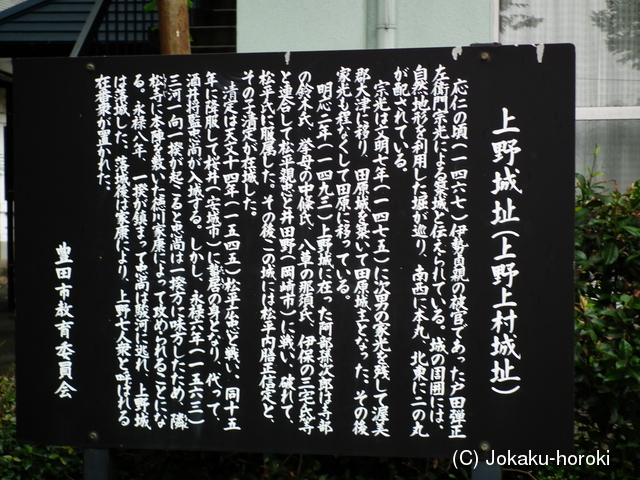 上野城址(上野上村城址)
応仁の頃(一四六七)伊勢貞親の被官であった戸田弾正
左衛門宗光による築城と伝えられている。城の周囲には、
自然地形を利用した堀が巡り、南西に本丸、北東に二の丸
が配されている。
宗光は文明七年(一四七五)に次男の家光を残して渥美
郡大津に移り、田原城を築いて田原城主となった。その後
家光も程なくして田原に移っている。
明応二年(一四九三)上野城に在った阿部孫次郎は寺部
の鈴木氏、挙母の中條氏、八草の那須氏、伊保の三宅氏等
と連合して松平親忠と井田野(岡崎市)に戦い、破れて、
松平氏に服属した。その後この城には松平内膳正信定と、
その子清定が在城した。
清定は天文十四年(一五四五)松平広忠と戦い、同十五
年に降服して桜井(安城市)に蟄居の身となり、代って、
酒井将監忠尚が入城する。しかし、永禄六年(一五六三)
三河一向一揆が起こると忠尚は一揆方に味方したため、隣
松寺に本陣を敷いた徳川家康によって攻められることにな
る。永禄八年、一揆が鎮まって忠尚は駿河に逃れ、上野城
は落城した。落城後は家康により、上野七人衆と呼ばれる
在番衆が置かれた。
豊田市教育委員会
(C) Jokaku-horoki